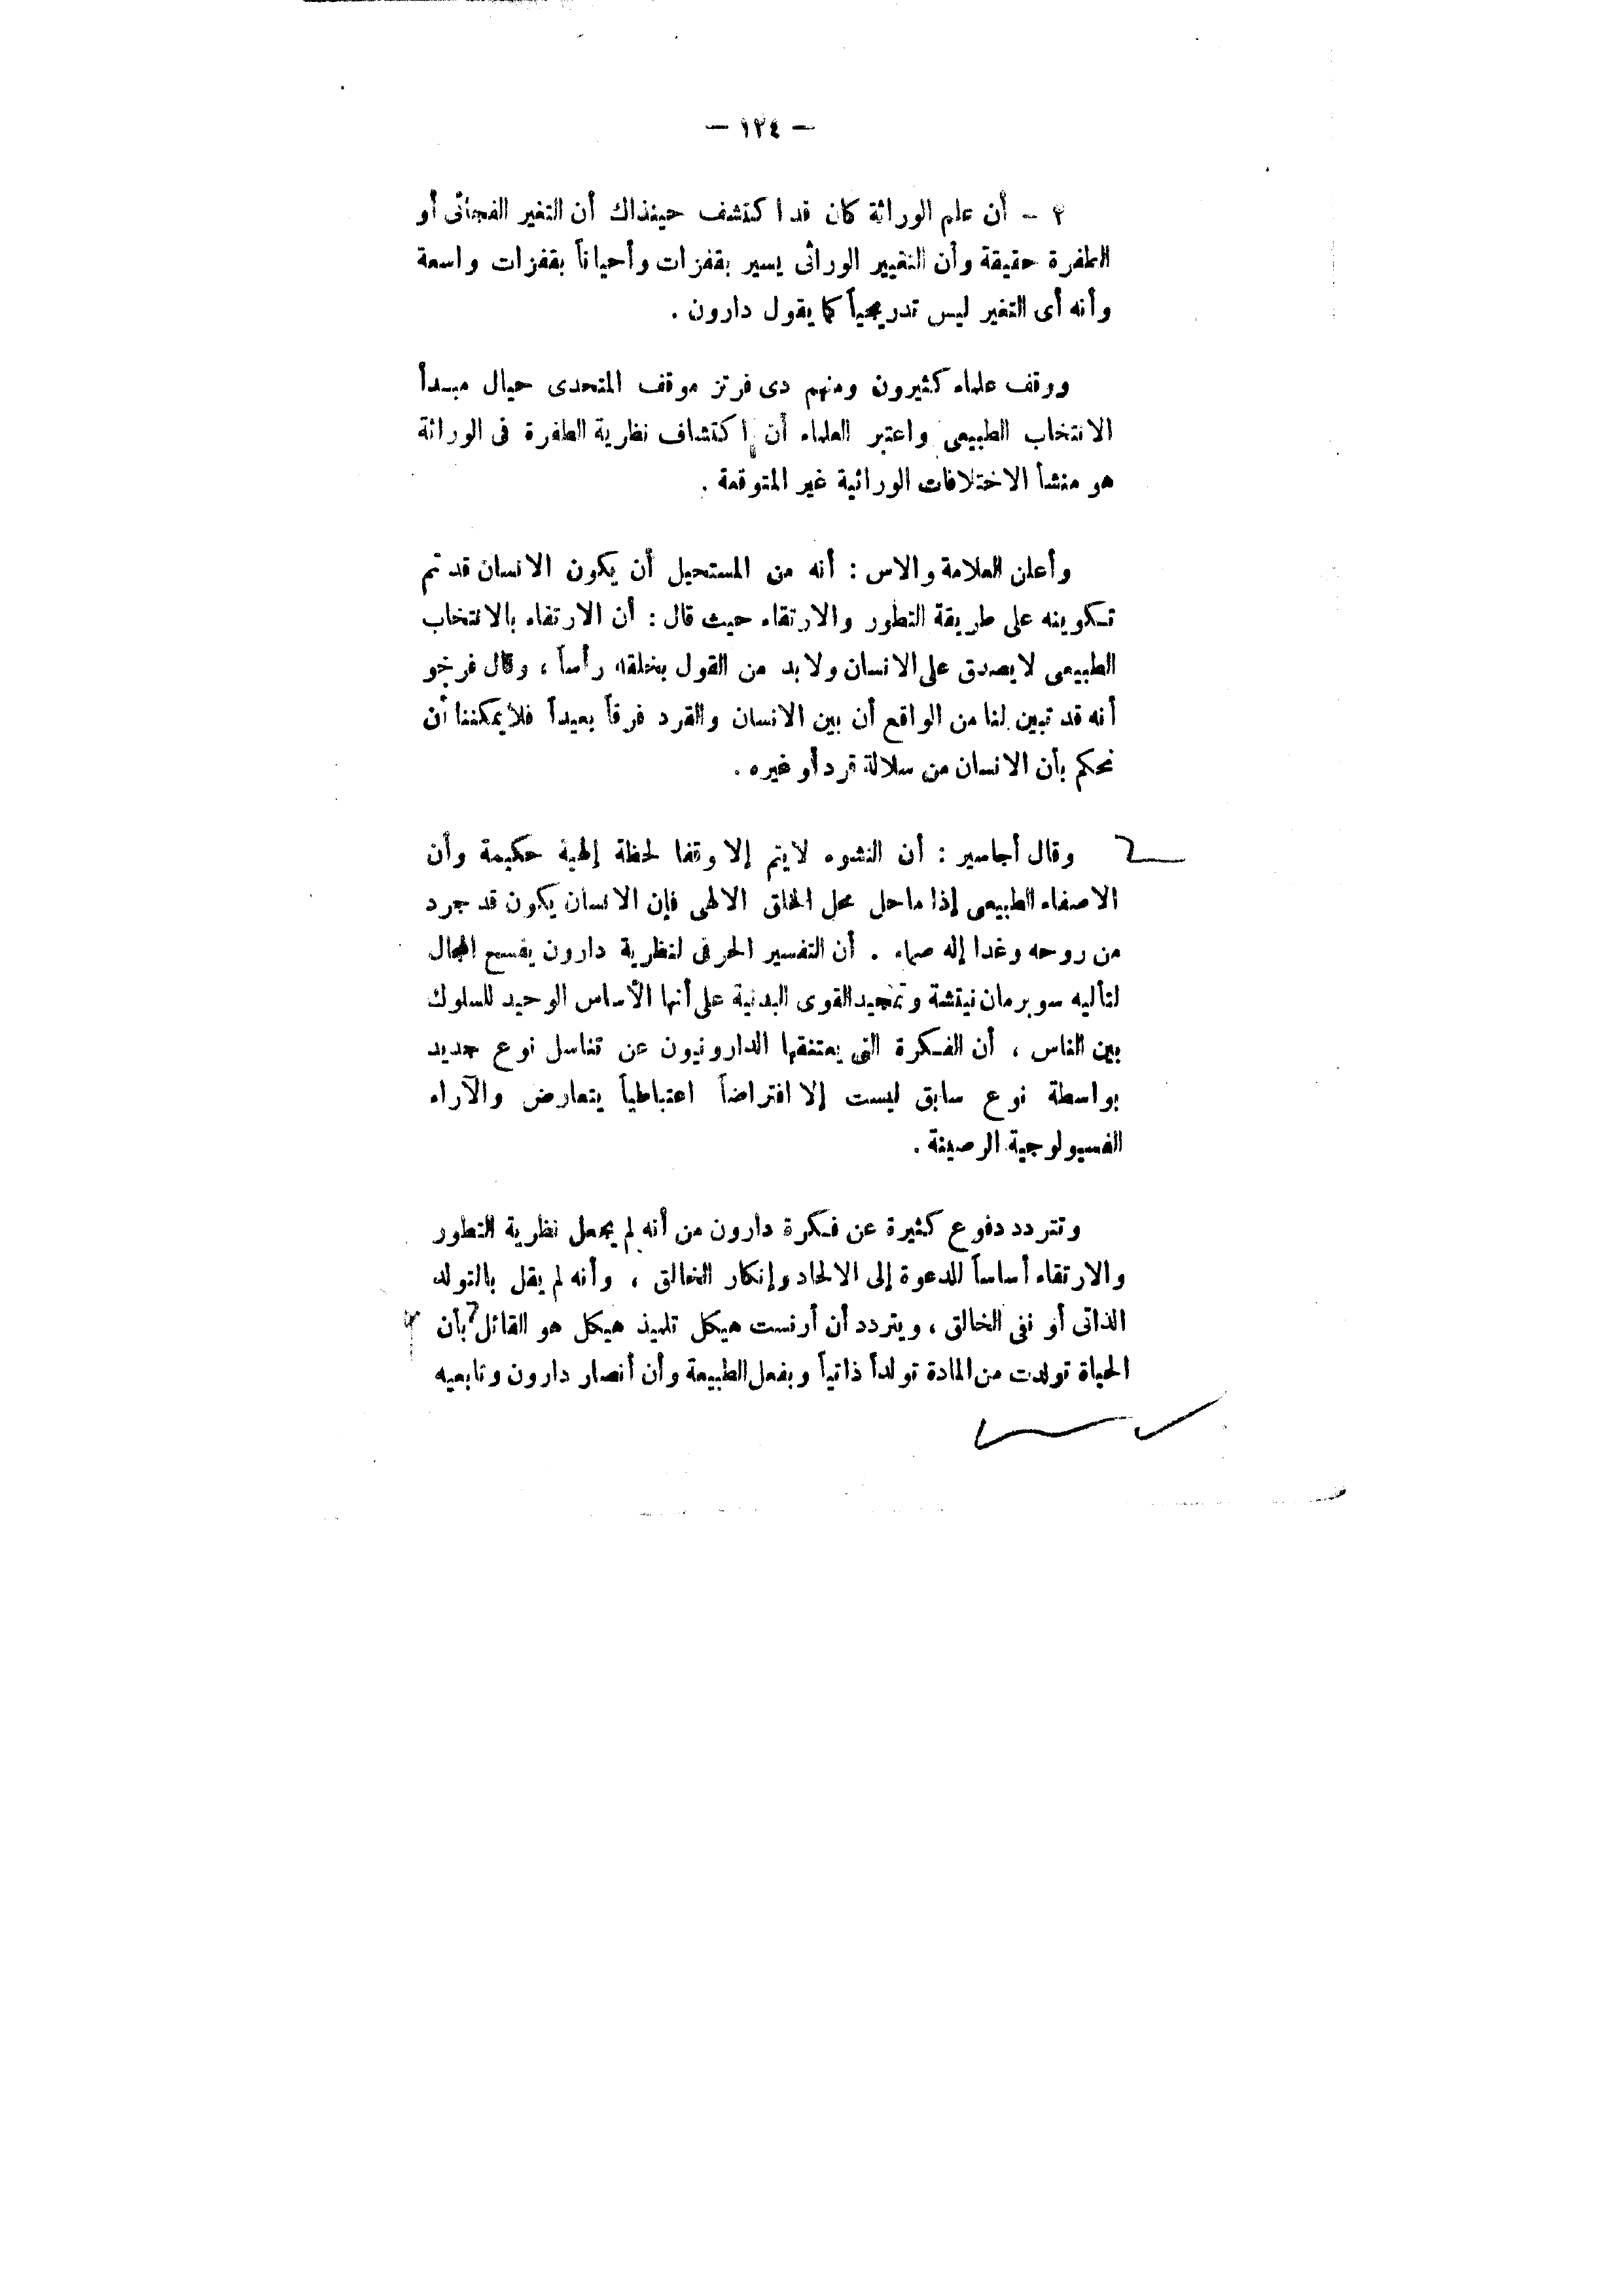 – ١٢٤ –
٢ – أن علم الوراثة كان قد اكتشف حينذاك أن التغير الفجائى أو
الطفرة حقيقة وأن التغيير الوراثى يسير بقفزات وأحياناً بقفزات واسعة
وأنه أى التغير ليس تدريجياً كما يقول دارون .
ووقف علماء كثيرون ومنهم دى فرتز موقف المتحدى حيال مبدأ
الانتخاب الطبيعى واعتبر العلماء أن اكتشاف نظرية الطفرة فى الوراثة
هو منشأ الاختلافات الوراثية غير المتوقعة .
وأعلن العلامة والاس : أنه من المستحيل أن يكون الانسان قد تم
تكوينه على طريقة التطور والارتقاء حيث قال : أن الارتفاء بالانتخاب
الطبيعى لا يصدق على الانسان ولا بد من القول بخلقه رأساً ، وقال فرخو
أنه قد تبين لنا من الواقع أن بين الانسان والقرد فرقاً بعيداً فلا يمكننا أن
نحكم بأن الانسان من سلالة قرد أو غيره .
وقال أجاسير : أن النشوء لا يتم إلا وقفا لحظة إلهية حكيمة وأن
الاصفاء الطبيعى إذا ما حل محل الخلق الالهى فإن الانسان يكون قد جرد
من روحه وغدا إله صماء . أن التفسير الحرفى لنظرية دارون يفسح المجال
لتأليه سوبرمان نيتشة وتمجيد القوى البدنية على أنها الأساس الوحيد للسلوك
بين الناس ، أن الفكرة التى يعتنقها الدارونيون عن تناسل نوع جديد
بواسطة نوع سابق ليست إلا افتراضاً اعتباطياً يتعارض والآراء
الفسيولوجية الرصينة .
وتتردد دفوع كثيرة عن فكرة دارون من أنه لم يجعل نظرية التطور
والارتقاء أساساً للدعوة إلى الالحاد وإنكار الخالق ، وأنه لم يقل بالتولد
الذاتى أو نفى الخالق ، ويتردد أن أرنست هيكل تلميذ هيكل هو القائل بأن
الحياة تولدت من المادة تولداً ذاتياً وبفعل الطبيعة وأن أنصار دارون وتابعيه